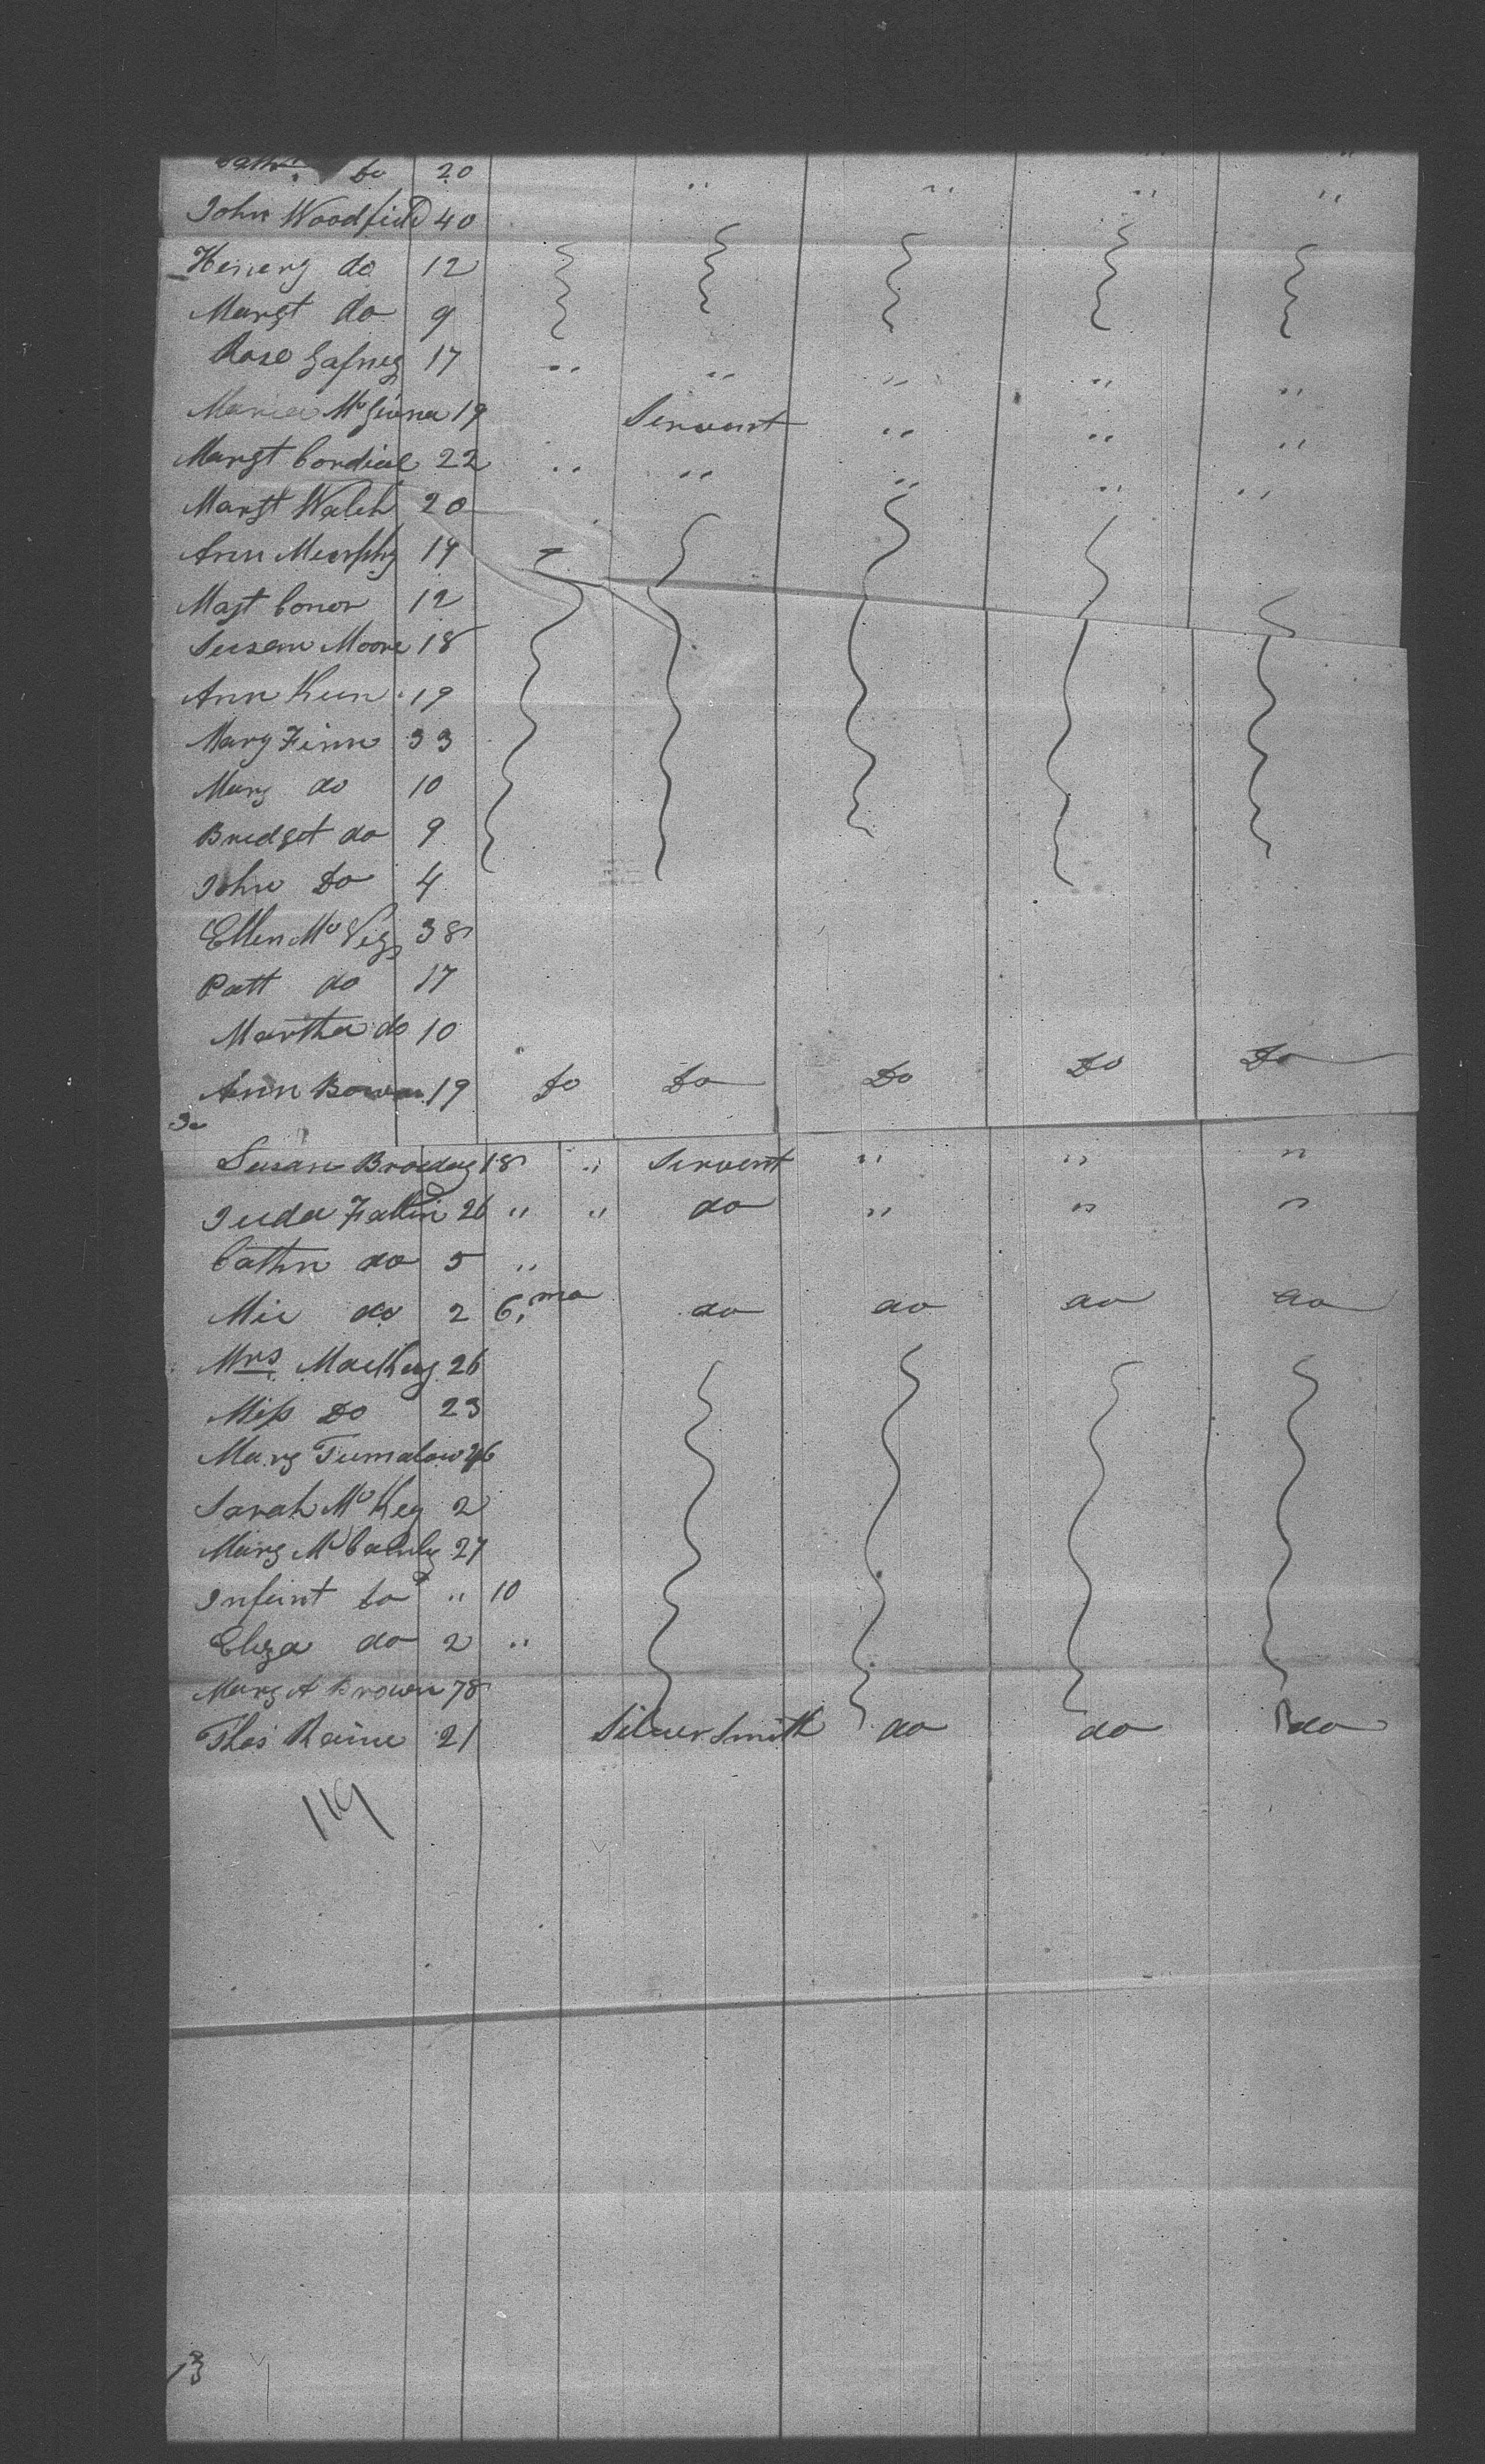 Cath. Do 20
John Woodfield 40 " " " "
Henery do 12
Margt do 9
Rose Gafney 17 " " " " "
Maria McGinna 19 Servant " " "
Margt Cordial 22 " " " " "
Margt Walch 20
Ann Murphy 19
Magt Conor 12
Susan Moore 18
Ann Keen 19
Mary Finn 33
Mary do 10
Bridget do 9
John Do 4
Ellen McVey 38
Patt do 17
Martha do 10
Ann Bowen 19 Do Do Do Do Do
Susan Broedag 18 " Servent " " "
Juda Fallin 26 " " do " " "
Cathn do 5 "
Mic do 2 6.mo do do do do
Mrs. MacKey 26
Miss Do 23
Mary Tumalow 26
Sarah McKey 2
Mary McCaully 27
Infant Do " 10
Eliza do 2 "
Mary A Brown 78
Thos Raine 21 Silver Smith do do do
119
13